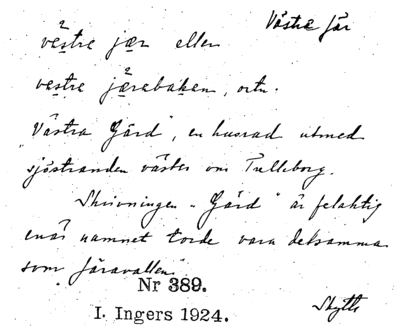 Västra Jär
vestre jær eller
vestre jærebaken, ortn.
"Västra Gärd", en husrad utmed
sjöstranden väster om Trelleborg.
Skrivningen "Gärd" är felaktig
enär namnet torde vara detsamma
som "Järavallen".
Nr 389.
I. Ingers 1924.
Skytts